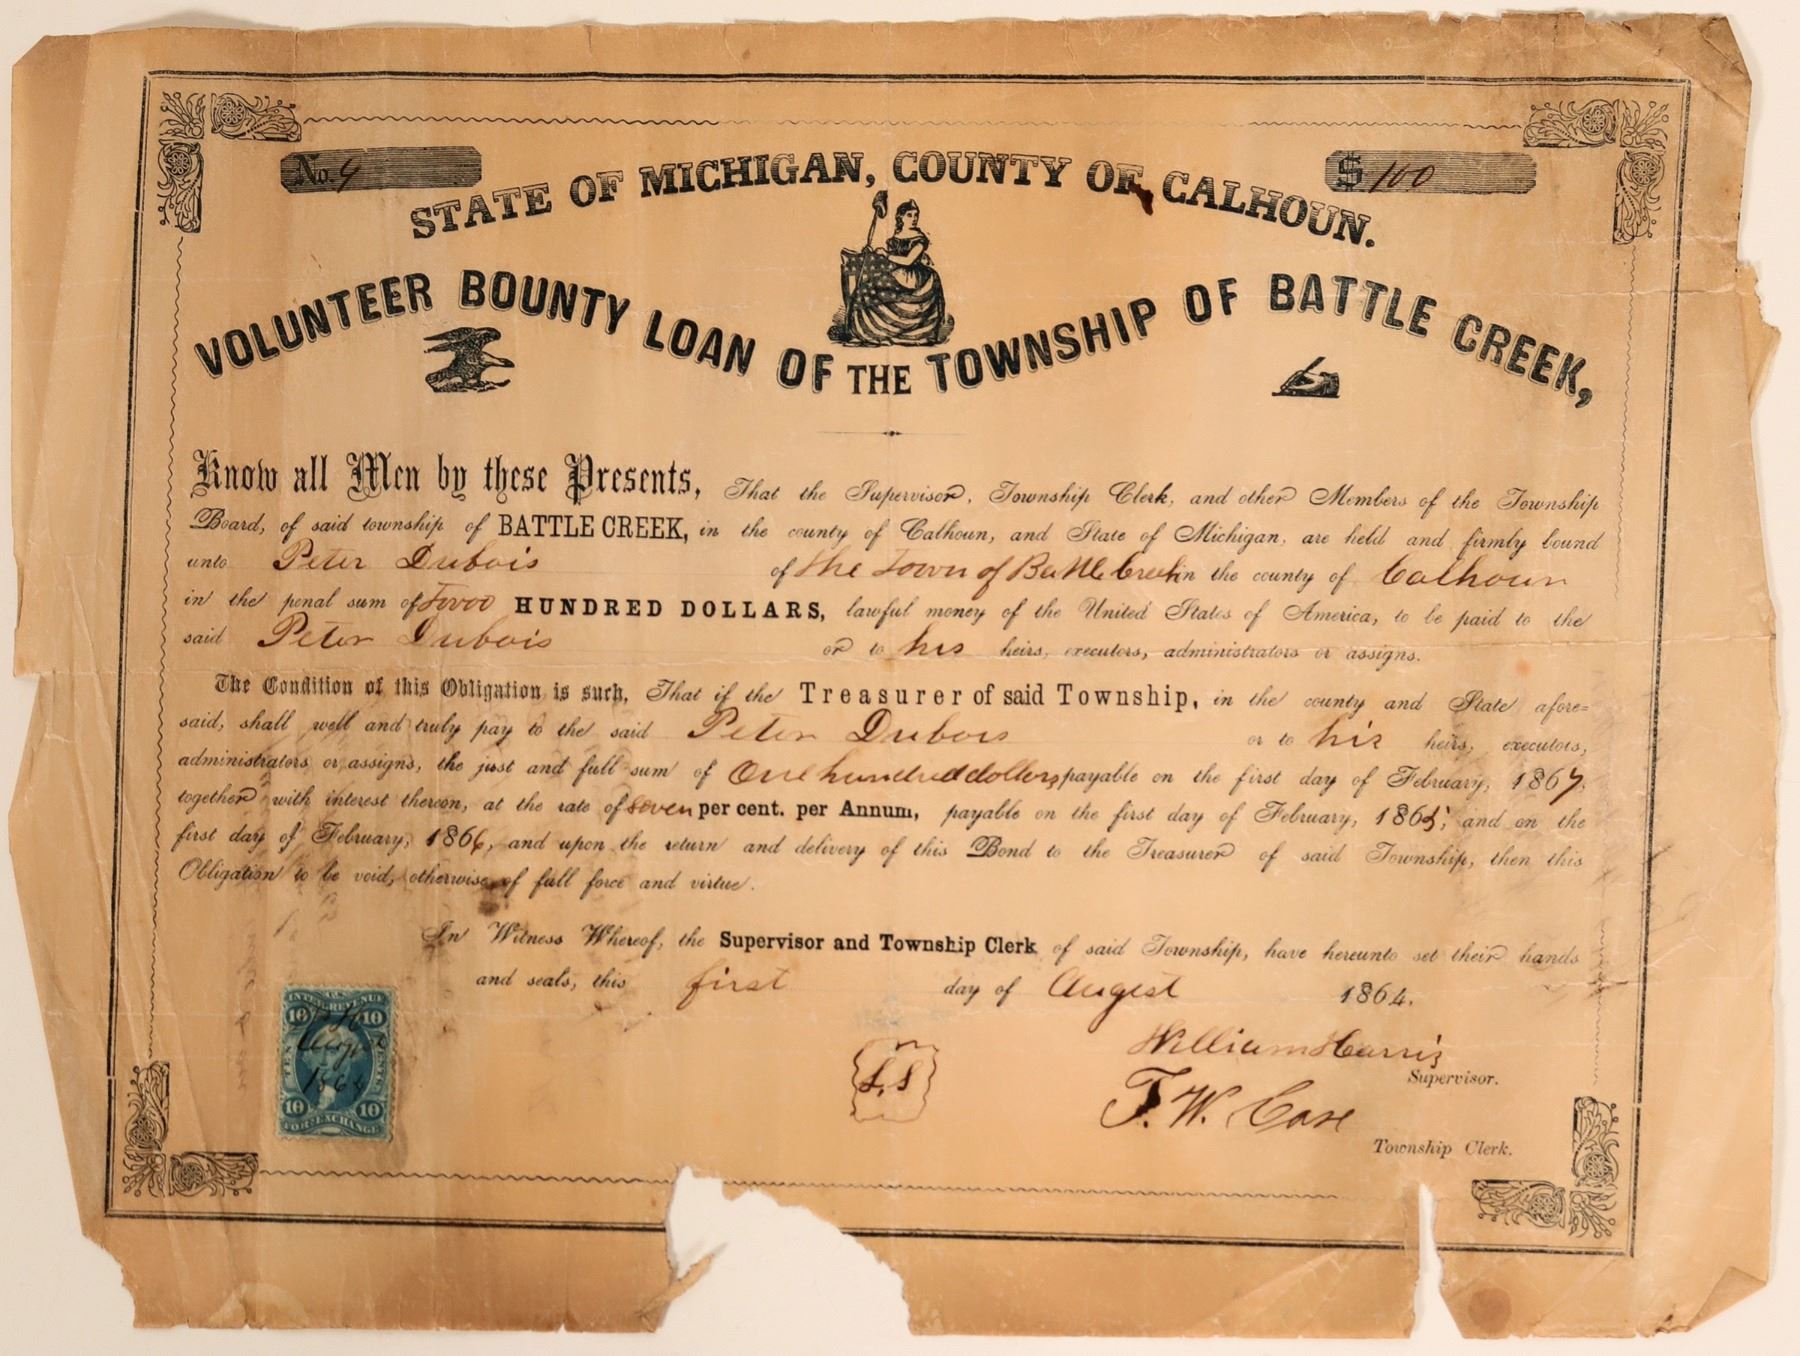 No. 4
$ 100
STATE OF MICHIGAN, COUNTY OF CALHOUN.
VOLUNTEER BOUNTY LOAN OF THE TOWNSHIP OF BATTLE CREEK,
Know all Men by these Presents, That the Supervisor, Township Clerk, and other Members of the Township
Board, of said township of BATTLE CREEK, in the county of Calhoun, and State of Michigan, are held and firmly bound
unto Peter Dubois of the Town of Battle Creek in the county of Calhoun
in the penal sum of Twoo HUNDRED DOLLARS, lawful money of the United States of America, to be paid to the
said Peter Dubois or to his heirs, executors, administrators or assigns.
The Condition of this Obligation is such, That if the Treasurer of said Township, in the county and State afore=
said, shall well and truly pay to the said Peter Dubois or to his heirs, executors,
administrators or assigns, the just and full sum of One hundred dollars payable on the first day of February, 1867,
together with interest thereon, at the rate of Seven per cent. per Annum, payable on the first day of February, 1865, and on the
first day of February, 1866, and upon the return and delivery of this Bond to the Treasurer of said Township, then this
Obligation to be void, otherwise of full force and virtue.
In Witness Whereof, the Supervisor and Township Clerk of said Township, have hereunto set their hands
and seals, this first day of Augest 1864.
William Harris
Supervisor.
L.S
T. W. Case
Township Clerk.
INTER. REVENUE
10 10
1864
TEN CENTS
10 10
FOR. EXCHANGE